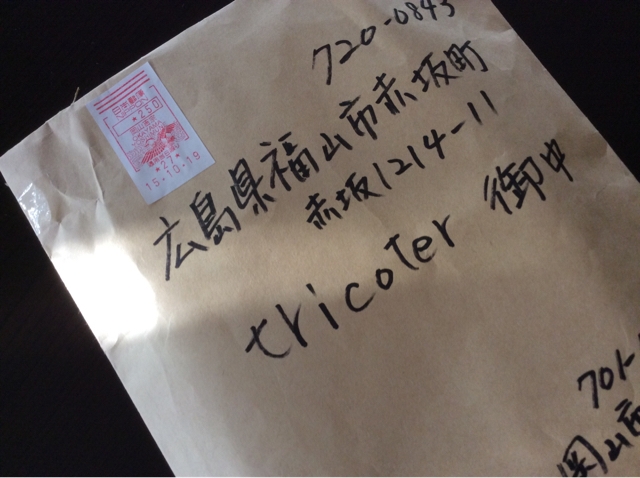 720-0843
広島県福山市赤坂町
赤坂1214-11
tricoter 御中
日本郵便
*250
15.10.19
701-
岡山市